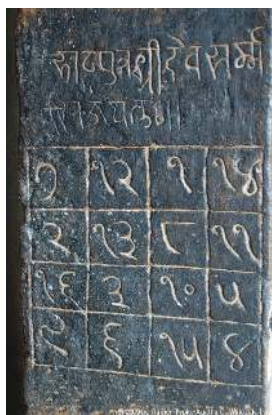 साढपुत्रश्रीदेवसर्म्म
७ १२ १ १४
२ १३ ८ ११
१६ ३ १० ५
९ ६ १५ ४